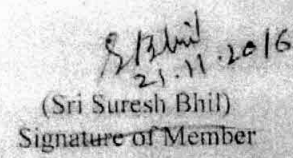 S Bhil
21.11.2016
(Sri Suresh Bhil)
Signature of Member